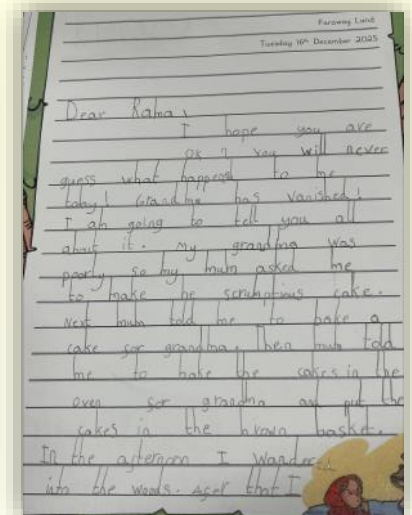 Faraway Land
Tuesday 16th December 2025
Dear Rama,
I hope you are
ok ? You will never
guess what happened to me
today! Grandma has vanished!
I am going to tell you all
about it. My grandma was
poorly so my mum asked me
to make he scrumptious cake.
Next mum told me to bake a
cake sor grandma. Then mum told
me to bake the cakes in the
oven sor grandma and put the
cakes in the brown basket.
In the afternoon I wandered
into the woods. Aser that I